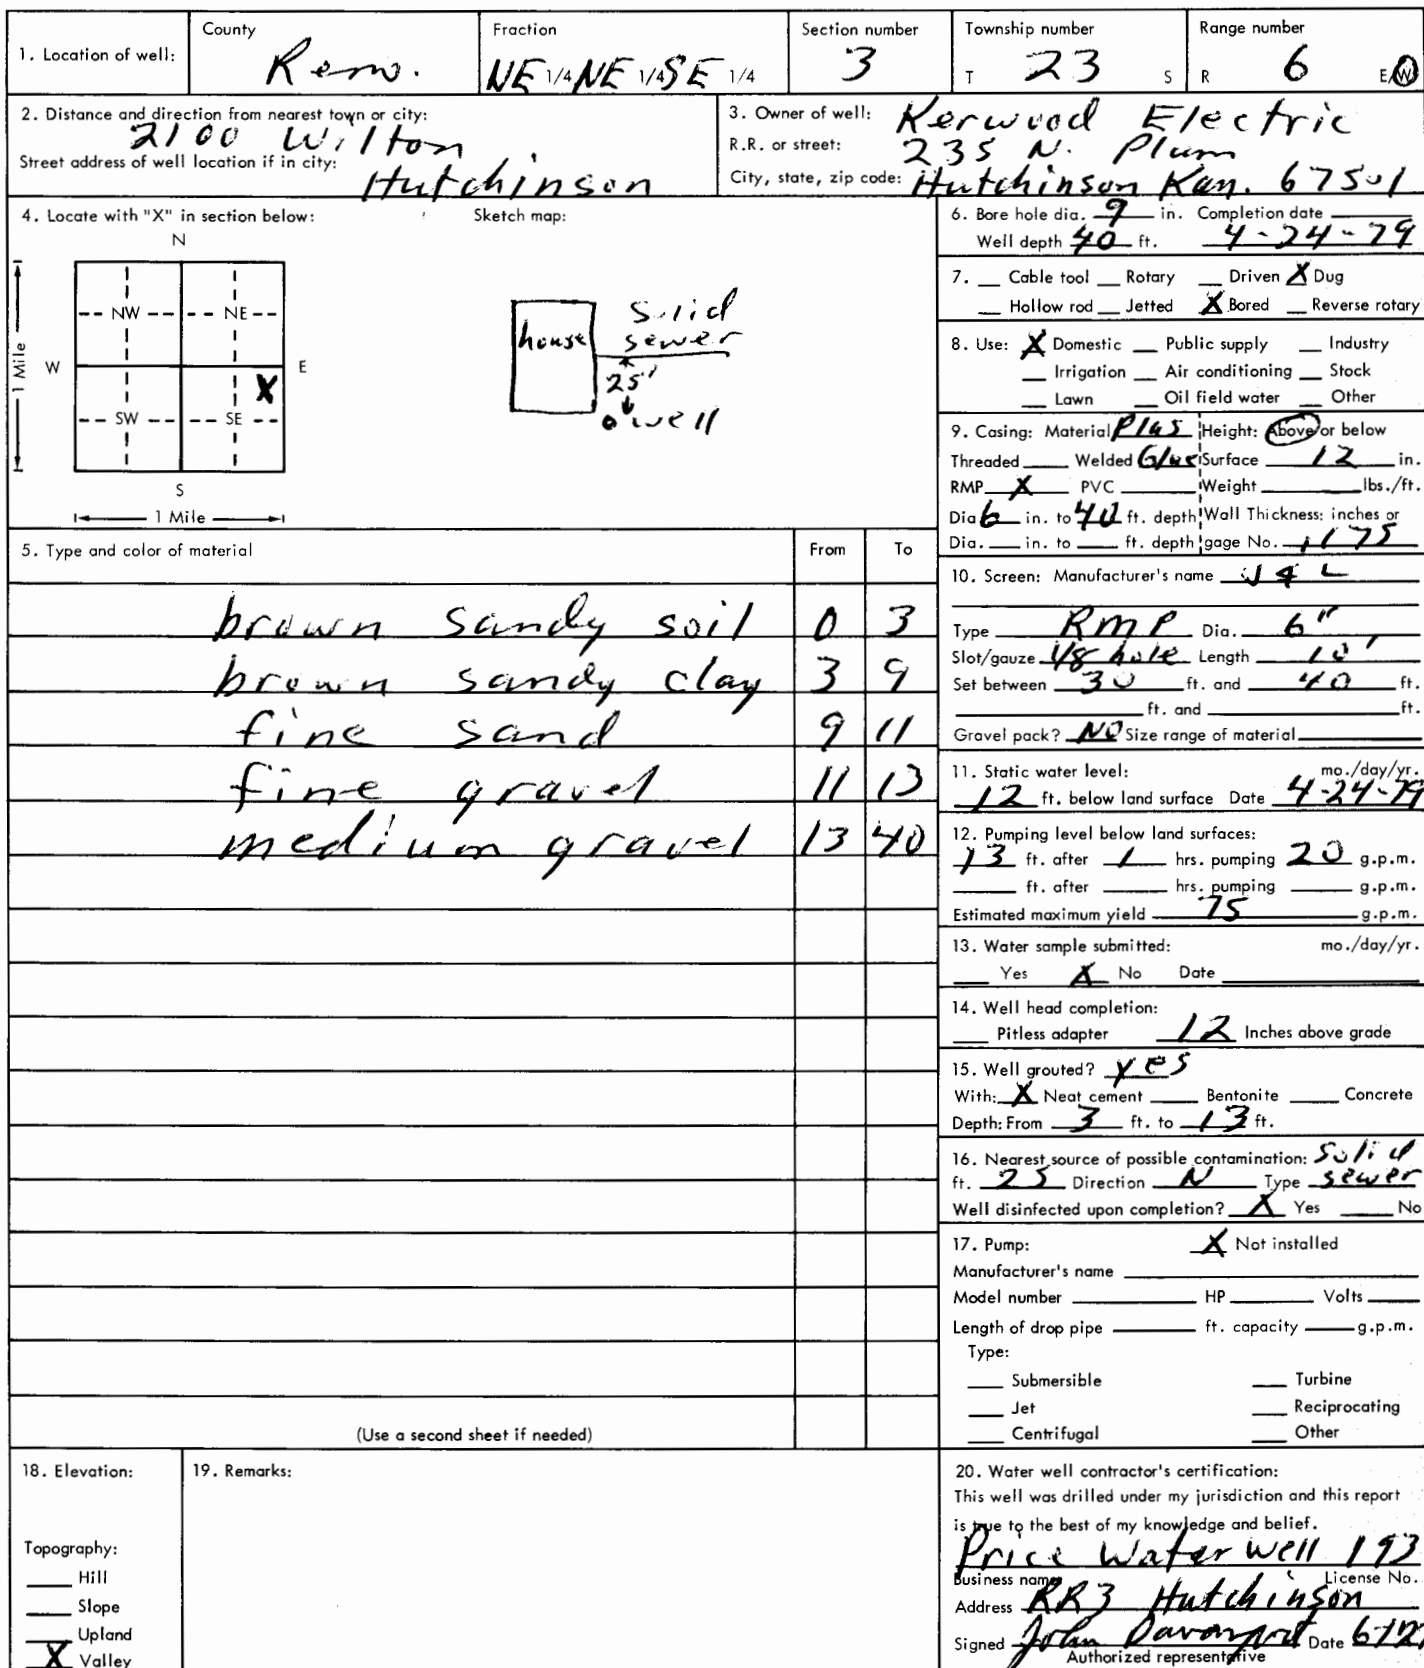 1. Location of well: County Reno. Fraction NE 1/4 NE 1/4 SE 1/4 Section number 3 Township number T 23 S Range number R 6 E/W
2. Distance and direction from nearest town or city: 2100 Wilton
Street address of well location if in city: Hutchinson
3. Owner of well: Kerwood Electric
R.R. or street: 235 N. Plum
City, state, zip code: Hutchinson Kan. 67501
4. Locate with "X" in section below:
N
NW NE
W E
X
SW SE
S
1 Mile
1 Mile
Sketch map:
house
solid
sewer
25'
well
5. Type and color of material From To
brown sandy soil 0 3
brown sandy clay 3 9
fine sand 9 11
fine gravel 11 13
medium gravel 13 40
(Use a second sheet if needed)
6. Bore hole dia. 9 in. Completion date
Well depth 40 ft. 4-24-79
7. __ Cable tool __ Rotary __ Driven X Dug
__ Hollow rod __ Jetted X Bored __ Reverse rotary
8. Use: X Domestic __ Public supply __ Industry
__ Irrigation __ Air conditioning __ Stock
__ Lawn __ Oil field water __ Other
9. Casing: Material Plas Height: Above or below
Threaded ___ Welded Glue Surface 12 in.
RMP X PVC ___ Weight ___ lbs./ft.
Dia 6 in. to 40 ft. depth Wall Thickness: inches or
Dia. __ in. to __ ft. depth gage No. .175
10. Screen: Manufacturer's name
Type RMP Dia. 6"
Slot/gauze 1/8 hole Length 10'
Set between 30 ft. and 40 ft.
___ ft. and ___ ft.
Gravel pack? NO Size range of material ___
11. Static water level: mo./day/yr.
12 ft. below land surface Date 4-24-79
12. Pumping level below land surfaces:
13 ft. after 1 hrs. pumping 20 g.p.m.
___ ft. after ___ hrs. pumping ___ g.p.m.
Estimated maximum yield 75 g.p.m.
13. Water sample submitted: mo./day/yr.
___ Yes X No Date ___
14. Well head completion:
___ Pitless adapter 12 Inches above grade
15. Well grouted? yes
With: X Neat cement ___ Bentonite ___ Concrete
Depth: From 3 ft. to 13 ft.
16. Nearest source of possible contamination: Solid
ft. 25 Direction N Type sewer
Well disinfected upon completion? X Yes ___ No
17. Pump: X Not installed
Manufacturer's name ___
Model number ___ HP ___ Volts ___
Length of drop pipe ___ ft. capacity ___ g.p.m.
Type:
___ Submersible ___ Turbine
___ Jet ___ Reciprocating
___ Centrifugal ___ Other
18. Elevation:
Topography:
___ Hill
___ Slope
___ Upland
X Valley
19. Remarks:
20. Water well contractor's certification:
This well was drilled under my jurisdiction and this report
is true to the best of my knowledge and belief.
Price Water Well 193
Business name License No.
Address RR3 Hutchinson
Signed John Davenport Date
Authorized representative